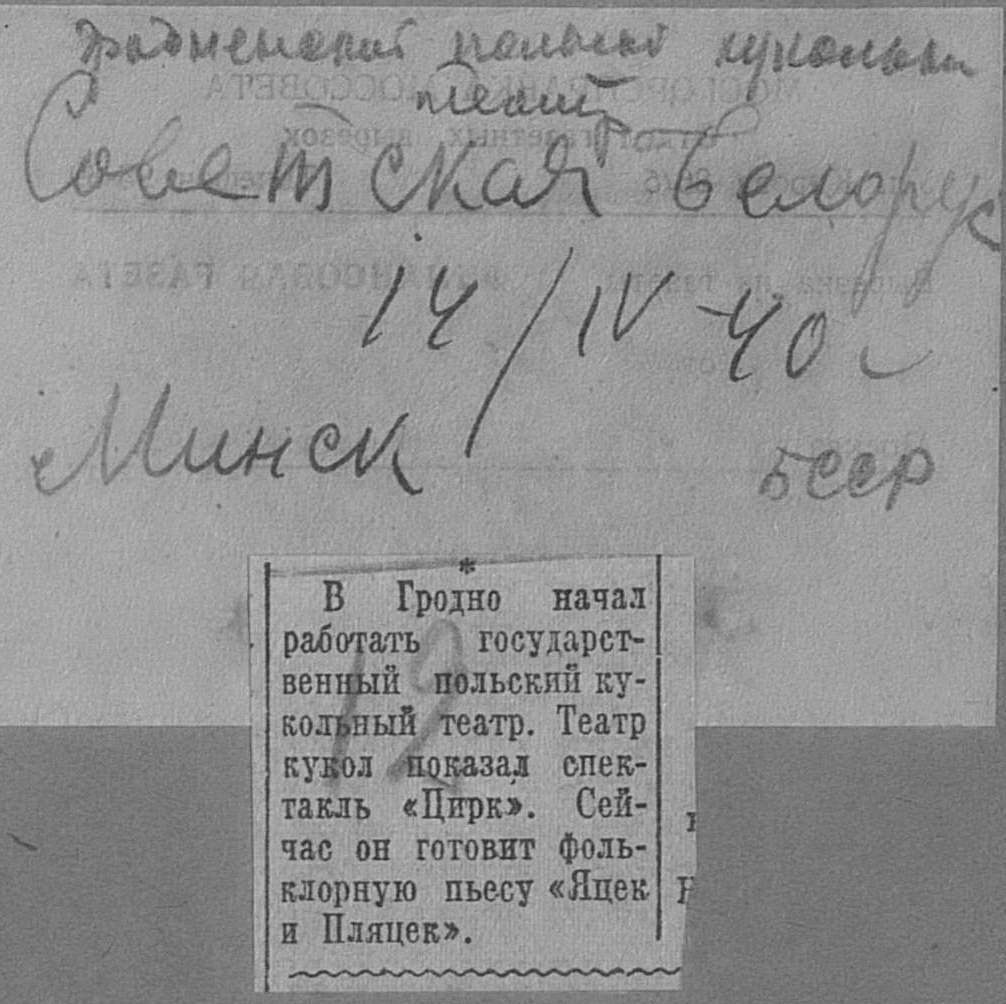 Гродненский польский кукольный
театр
Советская Белорус
14/IV-40
Минск
БССР
*
В Гродно начал
работать государст-
венный польский ку-
кольный театр. Театр
кукол показал спек-
такль «Цирк». Сей-
час он готовит фоль-
клорную пьесу «Яцек
и Пляцек».
12